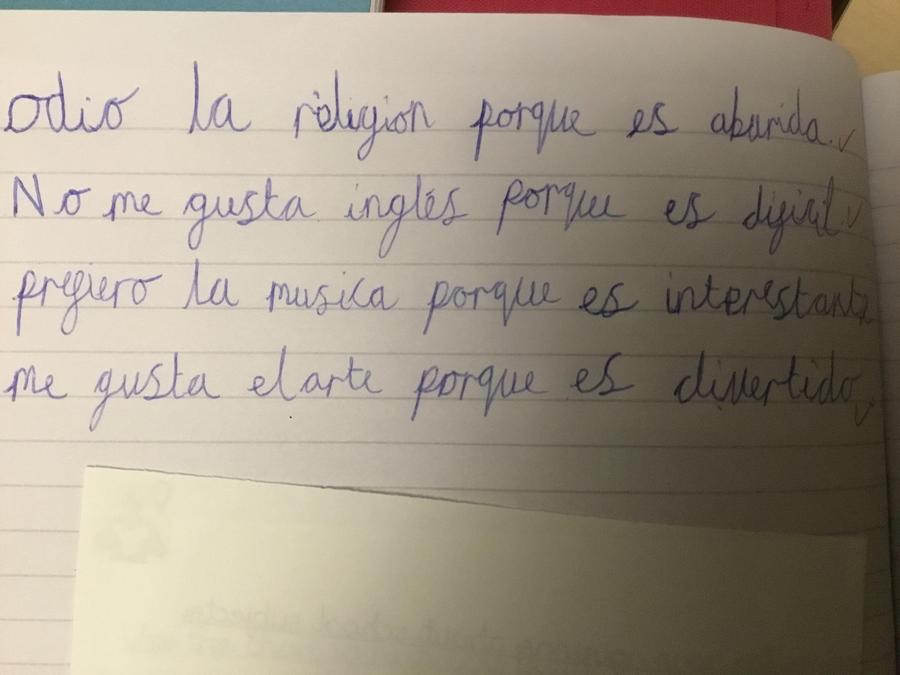 odio la religion porque es aburida.
No me gusta inglés porque es dificil.
prefiero la musica porque es interestante
me gusta el arte porque es divertido.